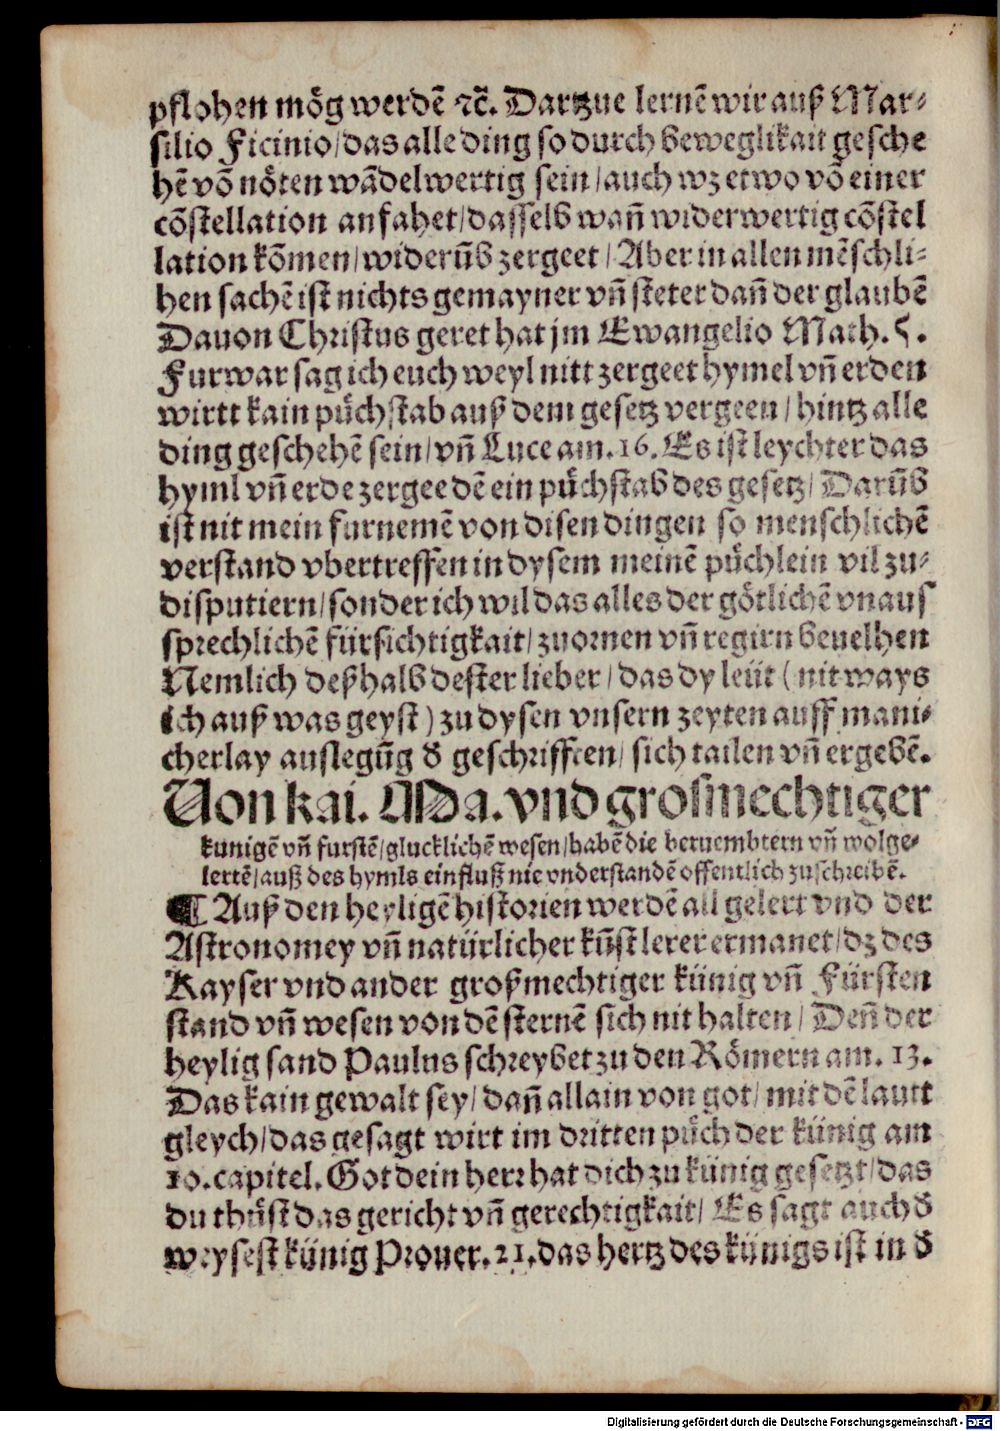 pflohen mög werdẽ ⁊c̃. Dartzue lernẽ wir auß Mar-
silio Ficinio/das alle ding so durch beweglikait gesche
hẽ võ nöten wãdelwertig sein/auch wz etwo võ einer
cõstellation anfahet/dasselb wañ widerwertig cõstel
lation kõmen/widerũb zergeet/Aber in allen mẽschli-
hen sachẽ ist nichts gemayner vñ steter dañ der glaubẽ
Dauon Christus geret hat jm Ewangelio Math. 5.
Furwar sag ich euch weyl nitt zergeet hymel vñ erden
wirtt kain půchstab auß dem gesetz vergeen/hintz alle
ding geschehẽ sein/vñ Luce am. 16. Es ist leychter das
hyml vñ erde zergee dẽ ein půchstab des gesetz/Darũb
ist nit mein furnemẽ von disen dingen so menschlichẽ
verstand vbertreffen in dysem meinẽ půchlein vil zu-
disputiern/sonder ich wil das alles der götlichẽ vnaus
sprechlichẽ fürsichtigkait/zuornen vñ regirn beuelhen
Nemlich deßhalb dester lieber/das dy leüt (nit ways
ich auß was geyst) zu dysen vnsern zeyten auff mani-
cherlay auslegũg d̕ geschrifften/sich tailen vñ ergebẽ.
Von kai. Ma. vnd grosmechtiger
kunigẽ vñ furstẽ/glucklichẽ wesen/habẽ die beruembtern vñ wolge-
lertẽ/auß des hymls einfluß nie vnderstandẽ offentlich zuschreibẽ.
¶ Auß den heyligẽ historien werdẽ all gelert vnd der
Astronomey vñ natürlicher kũst lerer ermanet/dz des
Kayser vnd ander großmechtiger künig vñ Fürsten
stand vñ wesen von dẽ sternẽ sich nit halten/Deñ der
heylig sand Paulus schreybet zu den Römern am. 13.
Das kain gewalt sey/dañ allain von got/mit dẽ lautt
gleych/das gesagt wirt im dritten půch der künig am
10. capitel. Got dein herr hat dich zu künig gesetzt/das
du thůst das gericht vñ gerechtigkait/Es sagt auch d̕
weysest künig Prouer. 21. das hertz des künigs ist in d̕
Digitalisierung gefördert durch die Deutsche Forschungsgemeinschaft - DFG